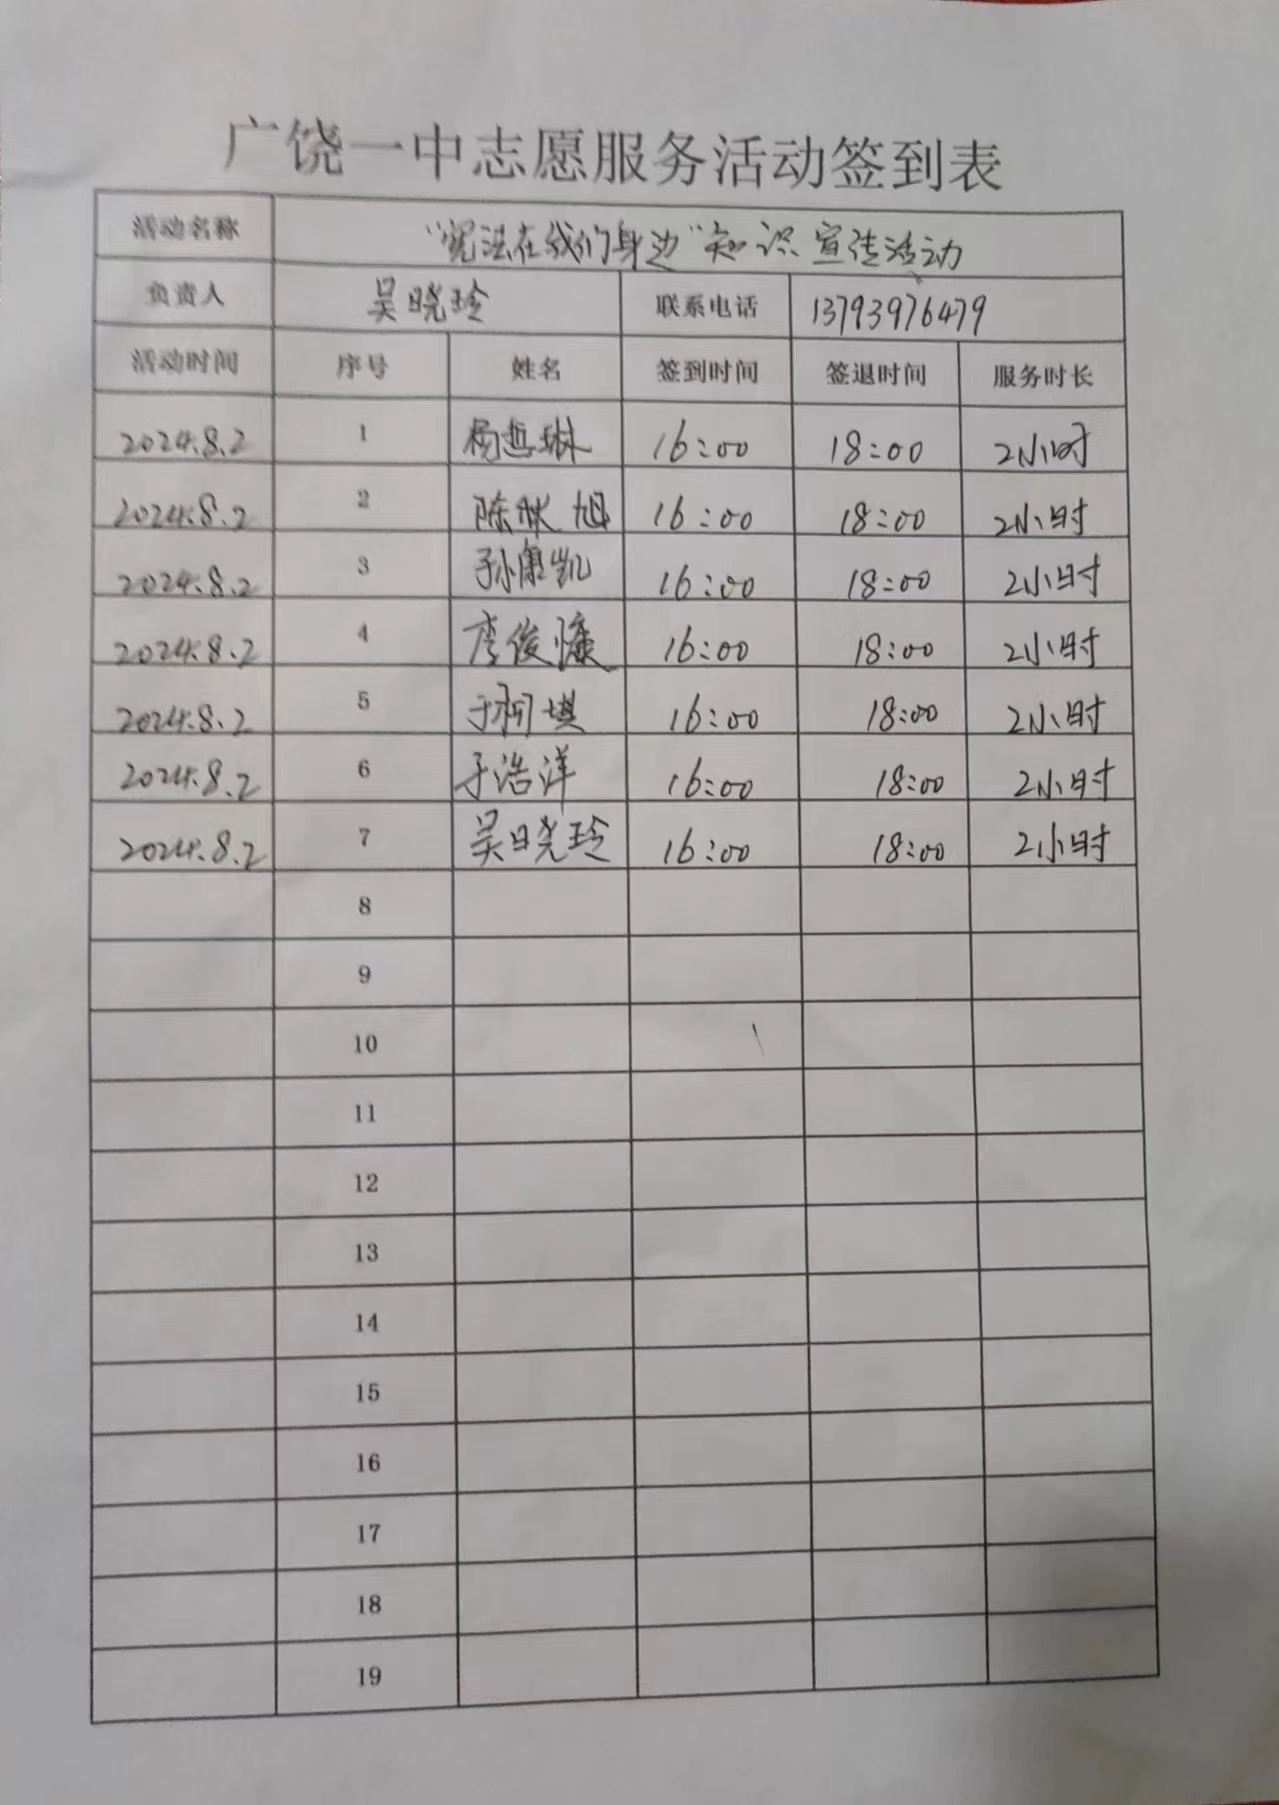 广饶一中志愿服务活动签到表
活动名称 “宪法在我们身边”知识宣传活动
负责人 吴晓玲 联系电话 13793976479
活动时间 序号 姓名 签到时间 签退时间 服务时长
2024.8.2 1 杨哲琳 16:00 18:00 2小时
2024.8.2 2 陈秋旭 16:00 18:00 2小时
2024.8.2 3 孙康凯 16:00 18:00 2小时
2024.8.2 4 李俊慷 16:00 18:00 2小时
2024.8.2 5 于柯琪 16:00 18:00 2小时
2024.8.2 6 于浩洋 16:00 18:00 2小时
2024.8.2 7 吴晓玲 16:00 18:00 2小时
8
9
10
11
12
13
14
15
16
17
18
19